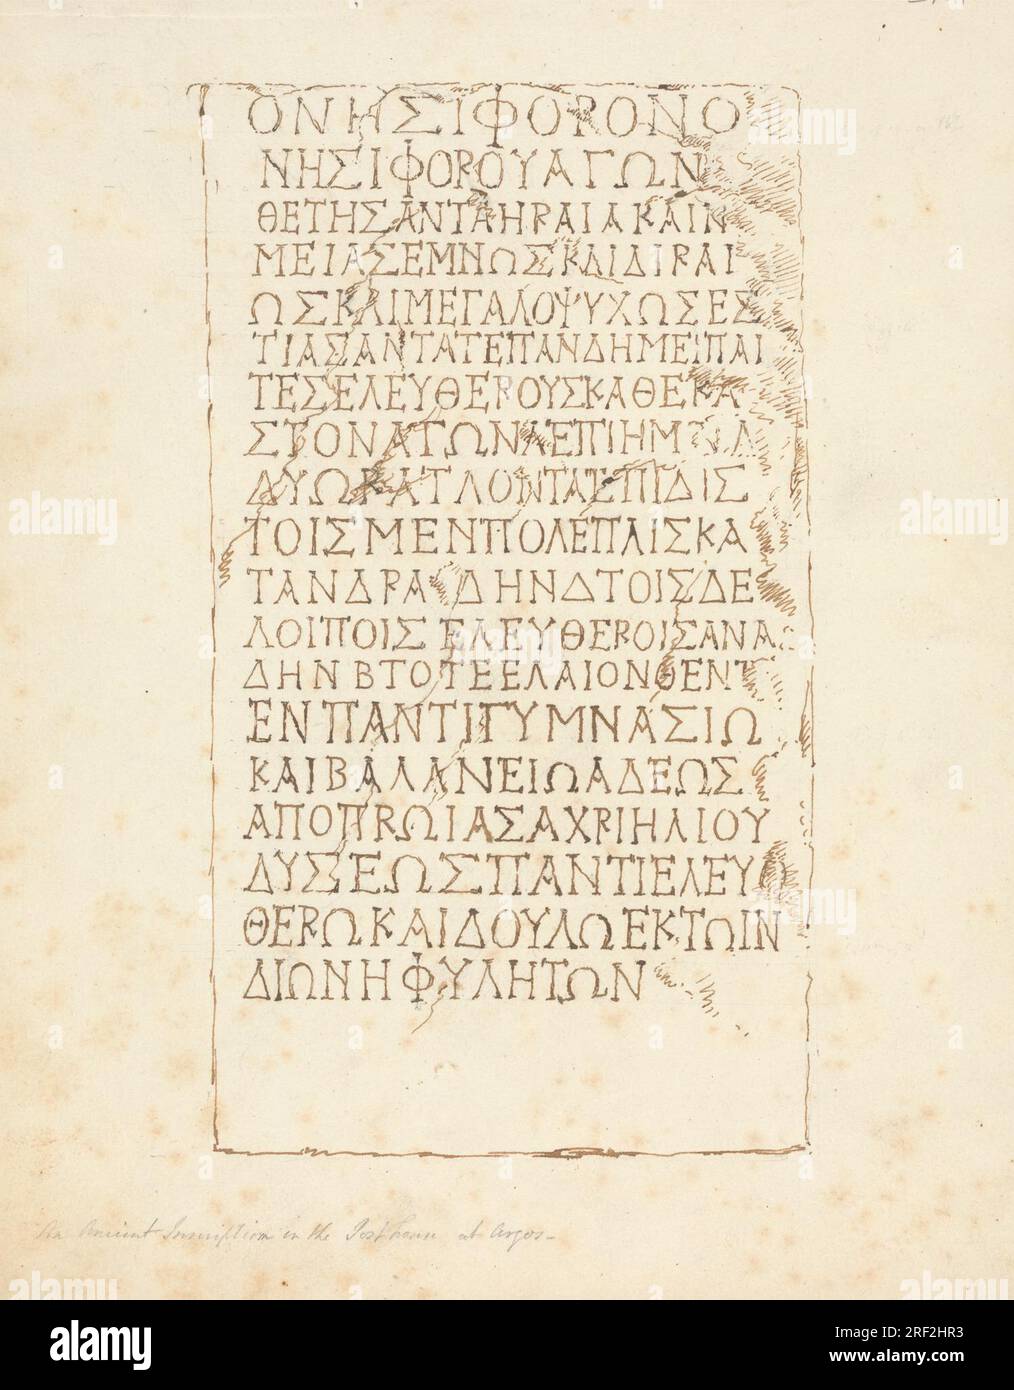 ΟΝΗΣΙΦΟRΟΝΟ
ΝΗΣΙΦΟRΟΥΑΓΩΝ
ΘΕΤΗΣΑΝΤΑΗRΑΙΑΚΑΙΝ
ΜΕΙΑΣΕΜΝΩΣΚΔΙΔΙRΑΙ
ΩΣΚΑΙΜΕΓΑΛΟΨΥΧΩΣΕΣ
ΤΙΑΣΑΝΤΑΤΕΠΑΝΔΗΜΕΙΠΑΙ
ΤΕΣΕΛΕΥΘΕRΟΥΣΚΑΘΕΚΑ
ΣΤΟΝΑΤΩΝ ΕΠΙΗΜ
ΔΥΩ
ΤΟΙΣΜΕΝΠΟΛΕΠΑΙΣΚΑ
ΤΑΝΔRΑ ΔΗΝΔΤΟΙΣΔΕ
ΛΟΙΠΟΙΣΕΛΕΥΘΕRΟΙΣΑΝΑ
ΔΗΝΒΤΟΤΕΕΛΑΙΟΝΘΕΝΤ
ΕΝΠΑΝΤΙΓΥΜΝΑΣΙΩ
ΚΑΙΒΑΛΑΝΕΙΩΑΔΕΩΣ
ΑΠΟΠRΩΙΑΣΑΧRΙΗΛΙΟΥ
ΔΥΣΕΩΣΠΑΝΤΙΕΛΕΥ
ΘΕRΩΚΑΙΔΟΥΛΩΕΚΤΩΙΝ
ΔΙΩΝΗΦΥΛΗΤΩΝ
An Ancient Inscription in the Posthouse at Argos-
alamy
Image ID: 2RF2HR3
www.alamy.com